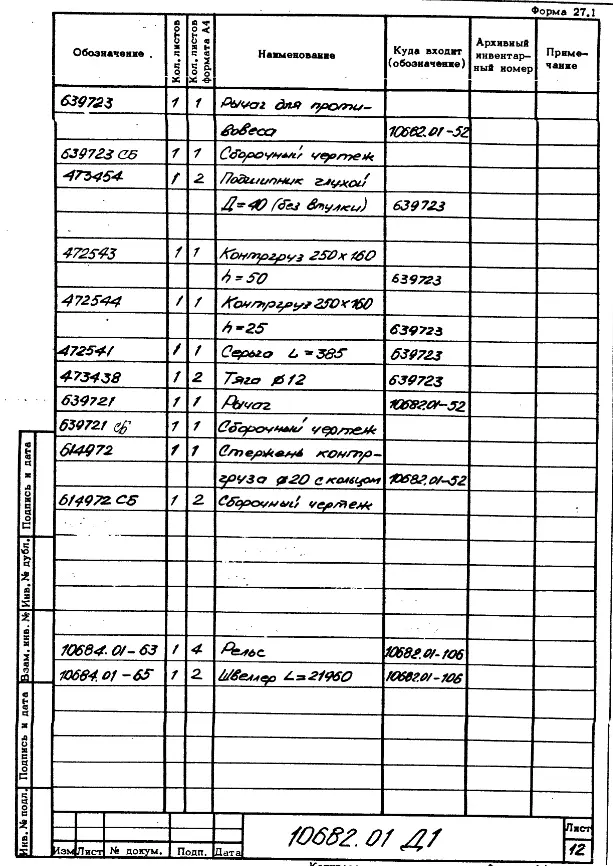 Форма 27.1
Обозначение . Кол. листов Кол. листов формата А4 Наименование Куда входит (обозначение) Архивный инвентар-ный номер Приме-чание
639723 1 1 Рычаг для проти-
вовеса 10682.01-52
639723 СБ 1 1 Сборочный чертеж
473454 1 2 Подшипник глухой
Д=40 (без втулки) 639723
472543 1 1 Контргруз 250х160
h=50 639723
472544 1 1 Контргруз 250х160
h=25 639723
472541 1 1 Серьга L=385 639723
473438 1 2 Тяга ø12 639723
639721 1 1 Рычаг 10682.01-52
639721 СБ 1 1 Сборочный чертеж
614972 1 1 Стержень контр-
груза ø20 с кольцом 10682.01-52
614972 СБ 1 2 Сборочный чертеж
10684.01-63 1 4 Рельс 10682.01-106
10684.01-65 1 2 Швеллер L=21960 10682.01-106
Инв. № подл. Подпись и дата Взам. инв. № Инв. № дубл. Подпись и дата
10682.01 Д1
Лист
12
Изм Лист № докум. Подп. Дата